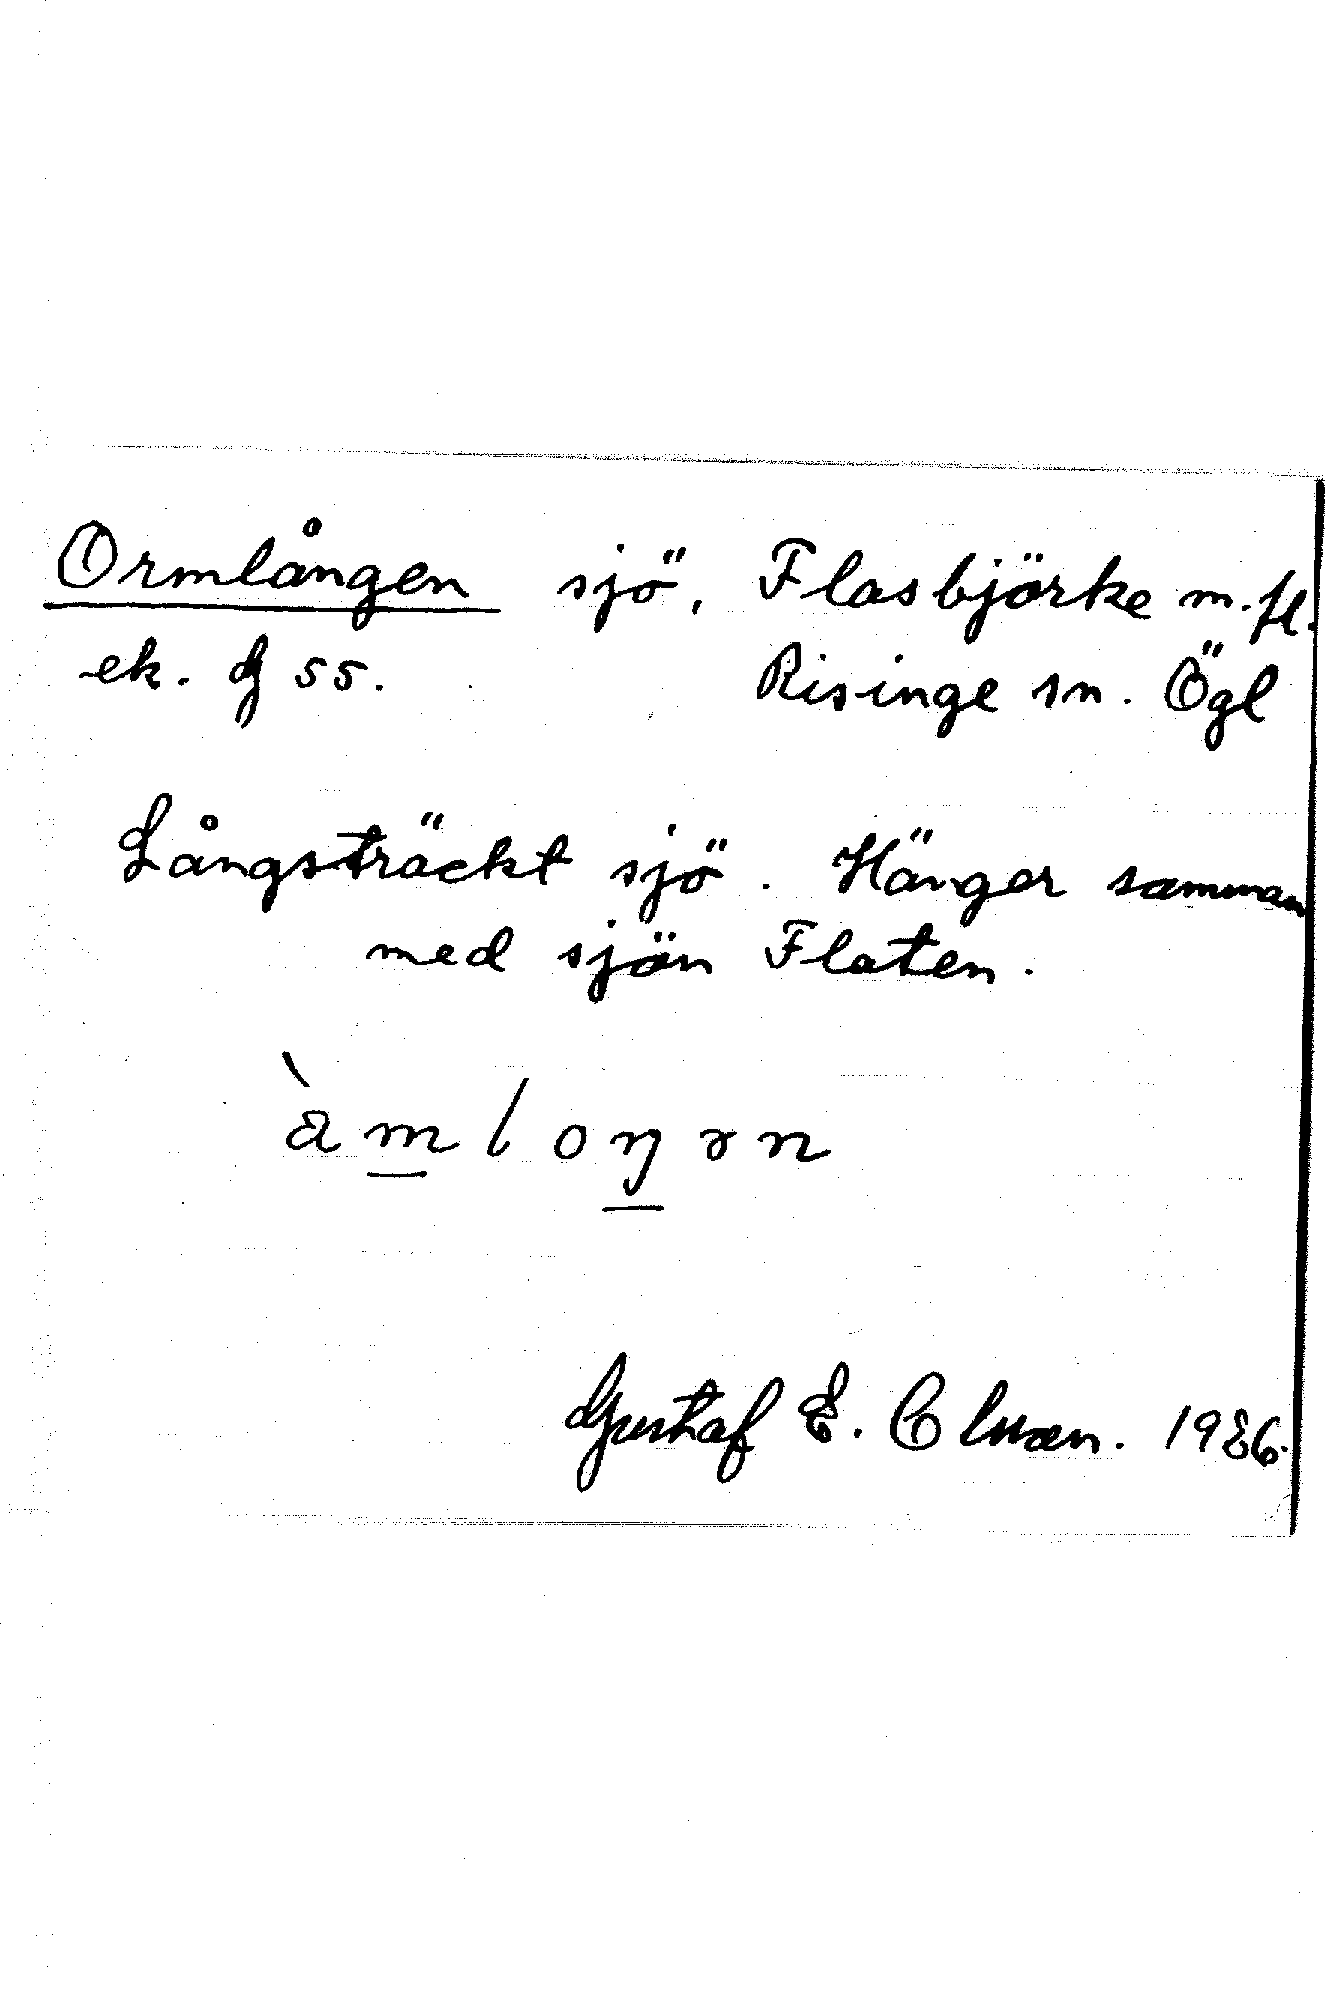 Ormlången sjö, Flasbjörke m.fl.
ek. g 55. Risinge sn. Ögl
Långsträckt sjö. Hänger samman
med sjön Flaten.
Gustaf E. 1986.